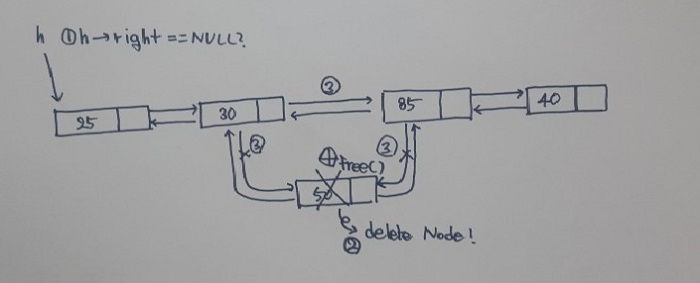 h ①h→right==NULL?
③
25
30
85
40
③
④free()
③
50
② delete Node!